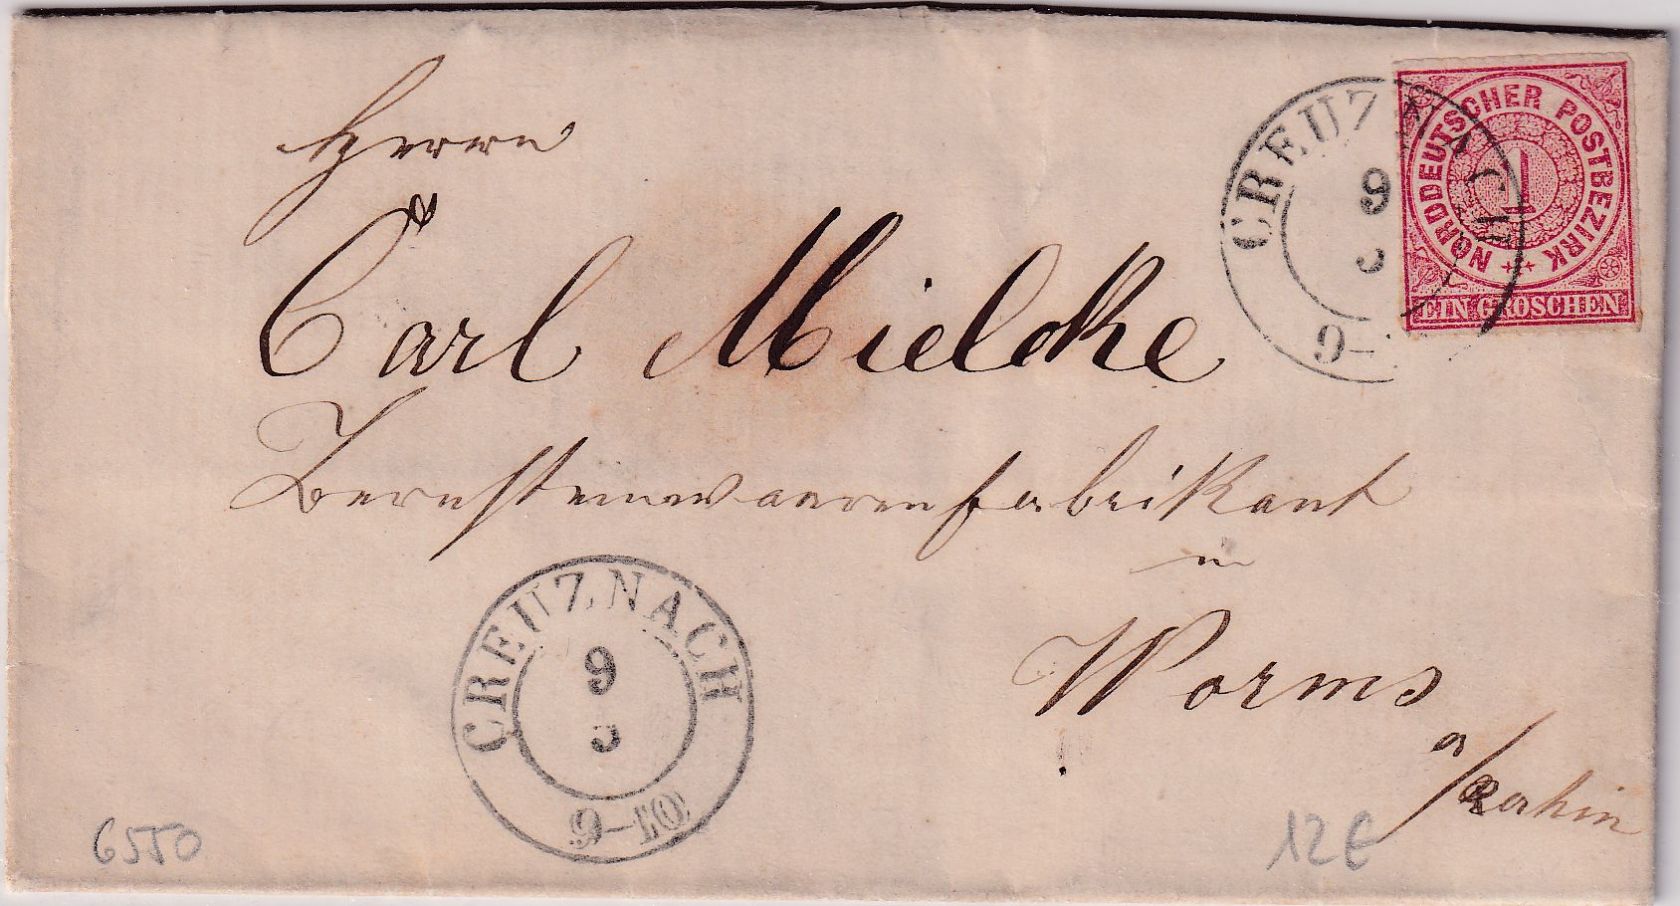 Herrn
Carl Mielcke
Bernsteinwaarenfabrikant
in
Worms
a/Rhein
CREUZNACH
9
9-
NORDDEUTSCHER POSTBEZIRK
1
EIN GROSCHEN
CREUZNACH
9
5
9-10
6550
12 €